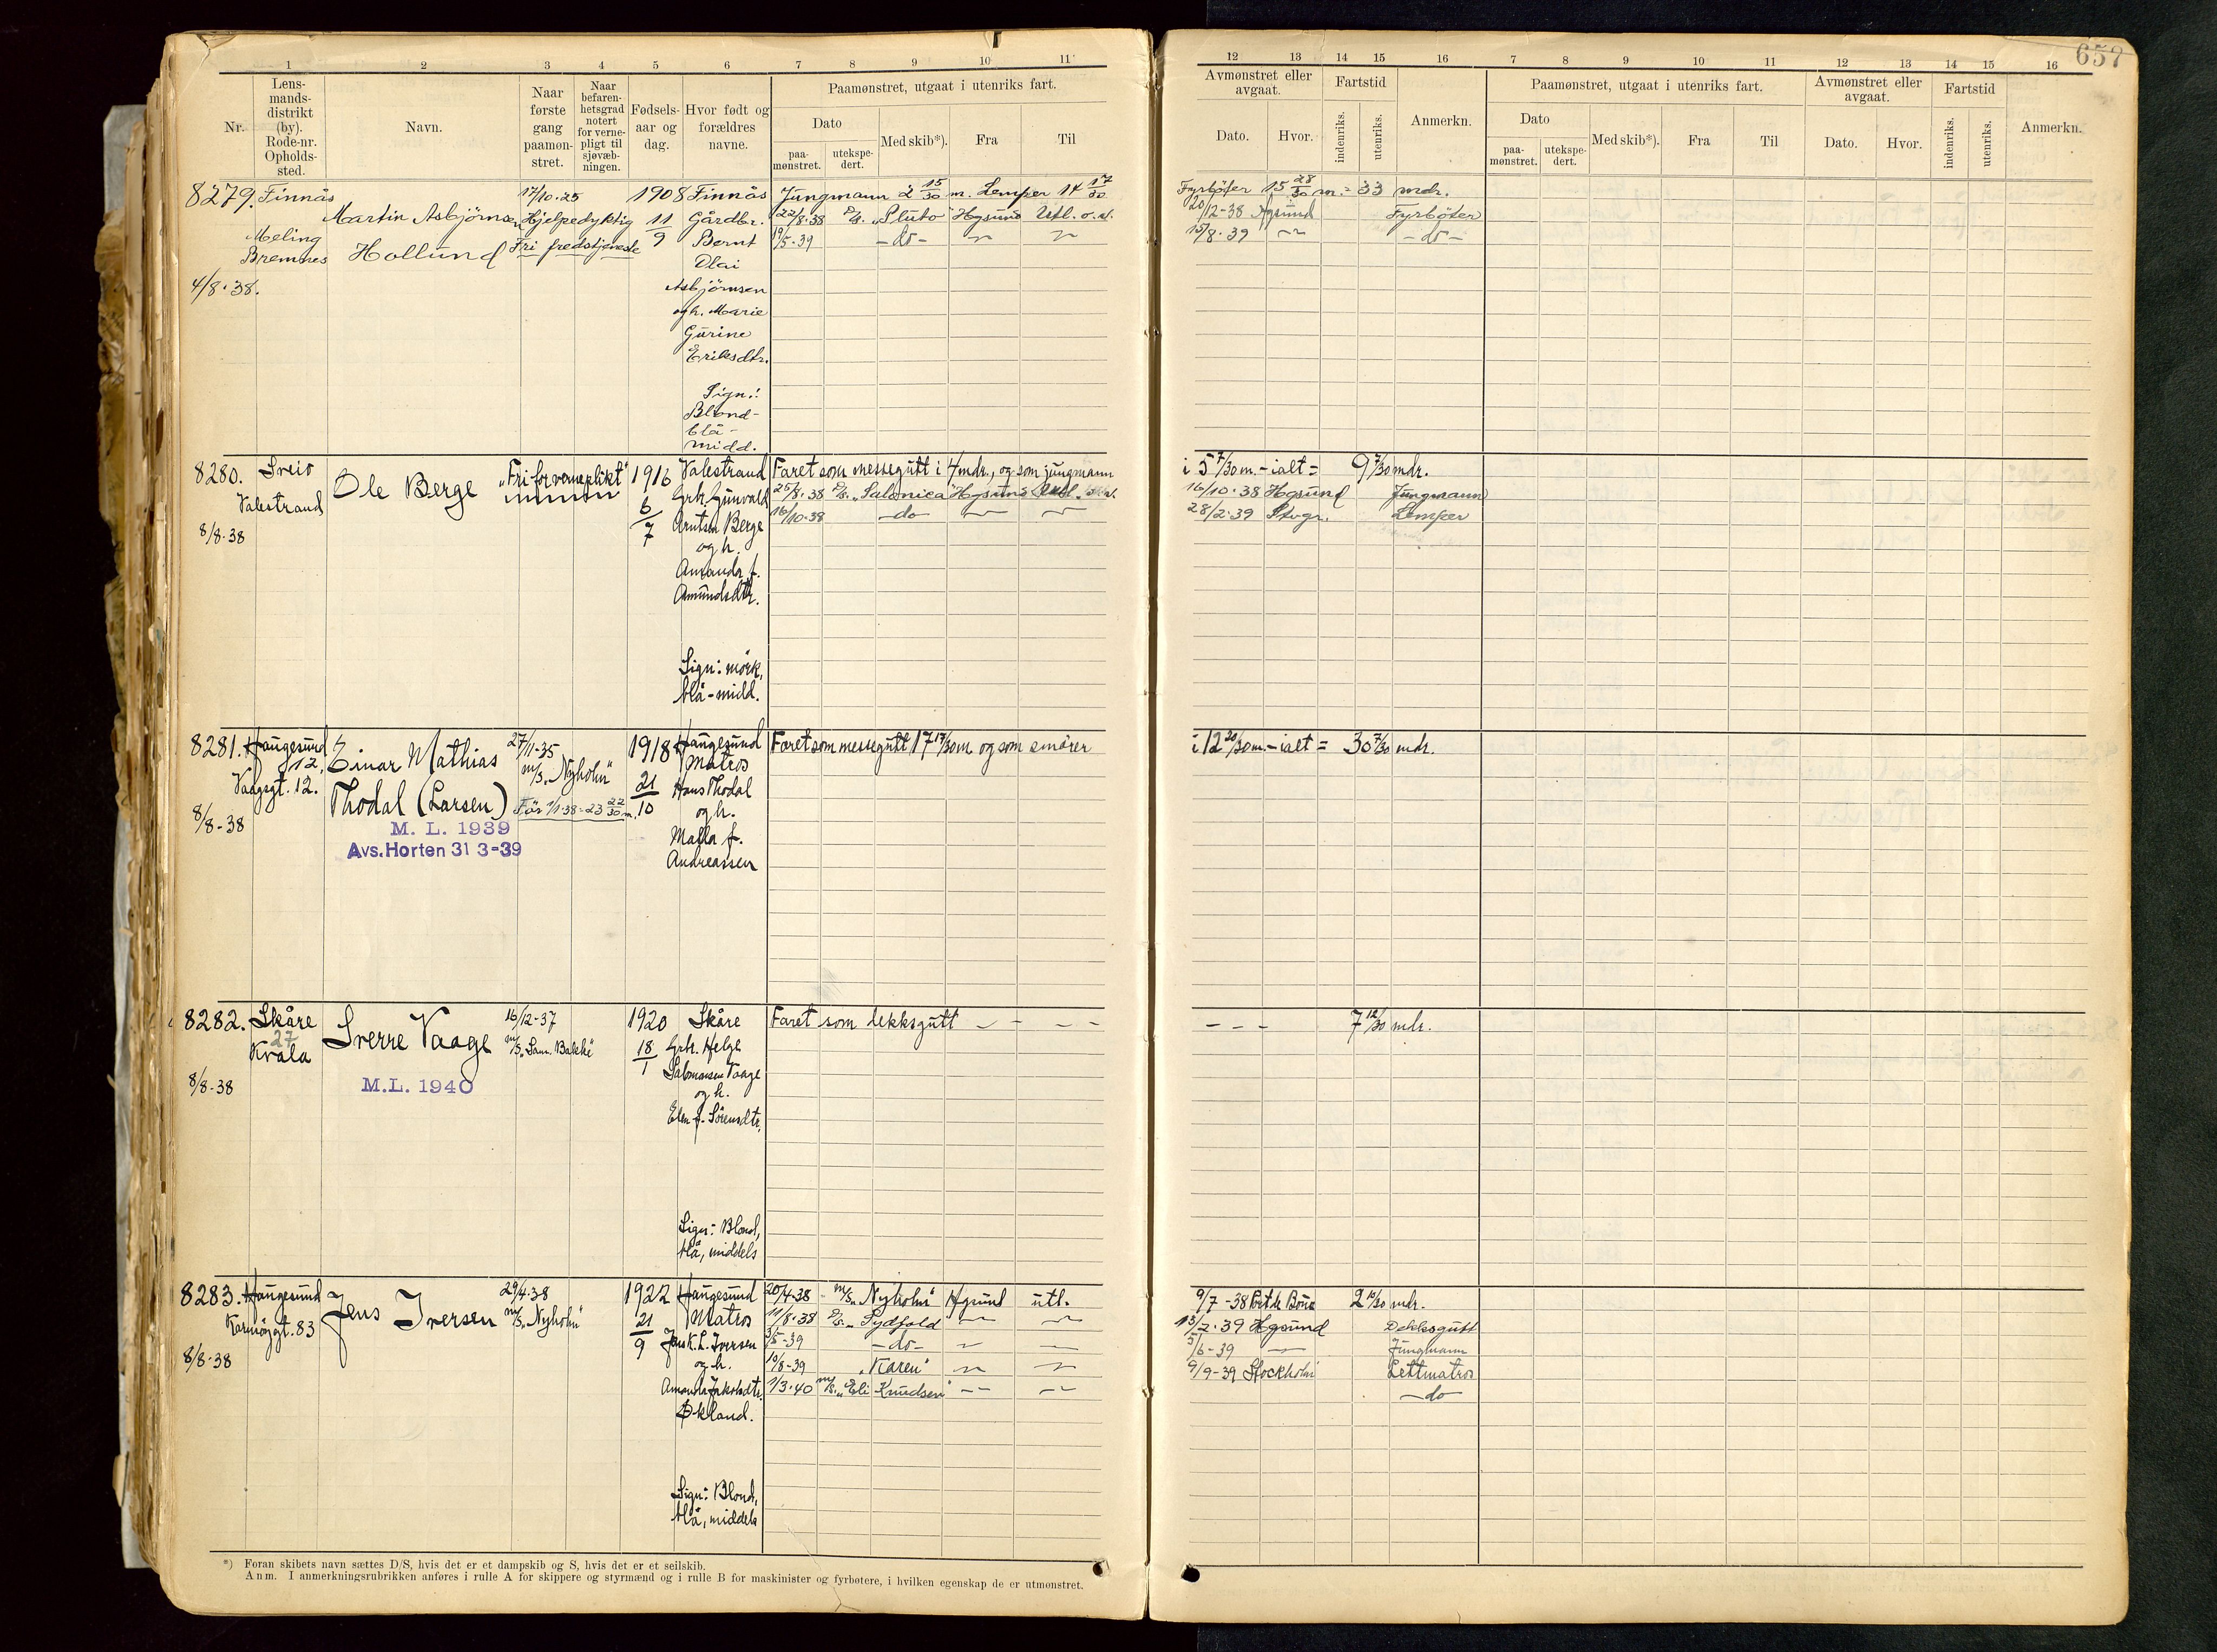 657
1 2 3 4 5 6 7 8 9 10 11
Nr.
Lens-
mands-
distrikt
(by).
Rode-nr.
Opholds-
sted.
Navn.
Naar
første
gang
paamøn-
stret.
Naar
befaren-
hetsgrad
notert
for verne-
pligt til
sjøvæb-
ningen.
Fødsels-
aar og
dag.
Hvor født og
forældres
navne.
Paamønstret, utgaat i utenriks fart.
Dato
paa-
mønstret.
utekspe-
dert.
Med skib*).
Fra
Til
12 13 14 15 16 7 8 9 10 11 12 13 14 15 16
Avmønstret eller
avgaat.
Dato. Hvor.
Fartstid
indenriks.
utenriks.
Anmerkn.
Paamønstret, utgaat i utenriks fart.
Dato
paa-
mønstret.
utekspe-
dert.
Med skib*).
Fra
Til
Avmønstret eller
avgaat.
Dato. Hvor.
Fartstid
indenriks.
utenriks.
Anmerkn.
8279. Finnås
Meling
Bremnes
4/8.38.
Martin Asbjørnsen
Hollund
17/10.25
Hjelpedyktig
Fri fredstjeneste
1908
11
9
Finnås
Gårdbr.
Bernt
Olai
Asbjörnsen
og h. Marie
Gurine
Eriksdtr.
Sign.:
Blond-
blå-
midd.
Jungmann 2 15/30 m. Lemper 14 17/30
22/8.38 D/s. „Pluto" Hgsund Utl. o.a.
19/5.39 -do- — —
Fyrböter 15 28/30 m. = 33 mdr.
20/12-38 Hgsund Fyrböter
15/8.39 — -do-
8280. Sveio
Valestrand
8/8-38
Ole Berge
„Fri for verneplikt"
1916
6
7
Valestrand
Grbr. Gunvald
Arntsen Berge
og h.
Amanda f.
Amundsdtr.
Sign: mörk,
blå-midd.
Faret som messegutt i 4 mdr., og som jungmann
25/8.38 D/s. „Salonica" Hgsund Utl.
16/10.38 -do- — —
i 5 7/30 m. - ialt = 9 7/30 mdr.
16/10.38 Hgsund Jungmann
28/2.39 Stvgr. Lemper
8281. Haugesund
12.
Vaagsgt. 12.
8/8-38
Einar Mathias
Thodal (Larsen)
M. L. 1939
Avs. Horten 31 3-39
27/11-35
m/s. „Nyholm"
Før 1/1-38 = 23 22/30 m.
1918
21
10
Haugesund
Matros
Hans Thodal
og h.
Malla f.
Andreassen
Faret som messegutt 17 17/30 m. og som smörer
i 12 20/30 m. - ialt = 30 7/30 mdr.
8282. Skåre
27
Kvala
8/8-38
Sverre Vaage
M.L. 1940
16/12-37
m/s. „Sam. Bakke"
1920
18
1
Skåre
Grbr. Helge
Salomonsen Vaage
og h.
Elen f. Sörensdtr.
Sign: Blond,
blå, middels
Faret som dekksgutt - - - -
- - - 7 12/30 mdr.
8283. Haugesund
Karmöygt. 83
8/8-38
Jens Iversen
29/4.38
m/s. „Nyholm"
1922
21
9
Haugesund
Matros
Jens K. L. Iversen
og h.
Amanda Jakobsdtr.
Økland.
Sign: Blond,
blå, middels
20/4-38 - m/s. „Nyholm" Hgsund utl.
11/8.38 D/s. „Sydfold — —
3/5-39 -do- — —
10/8-39 „Karen" — —
1/3.40 m/s. „Eli Knudsen" — —
9/7-38 Port de Bouc 2 10/30 mdr.
13/2.39 Hgsund Dekksgutt
5/6-39 — Jungmann
9/9-39 Stockholm Lettmatros
-do-
*) Foran skibets navn sættes D/S, hvis det er et dampskib og S, hvis det er et seilskib.
Anm. I anmerkningsrubrikken anføres i rulle A for skippere og styrmænd og i rulle B for maskinister og fyrbøtere, i hvilken egenskap de er utmønstret.